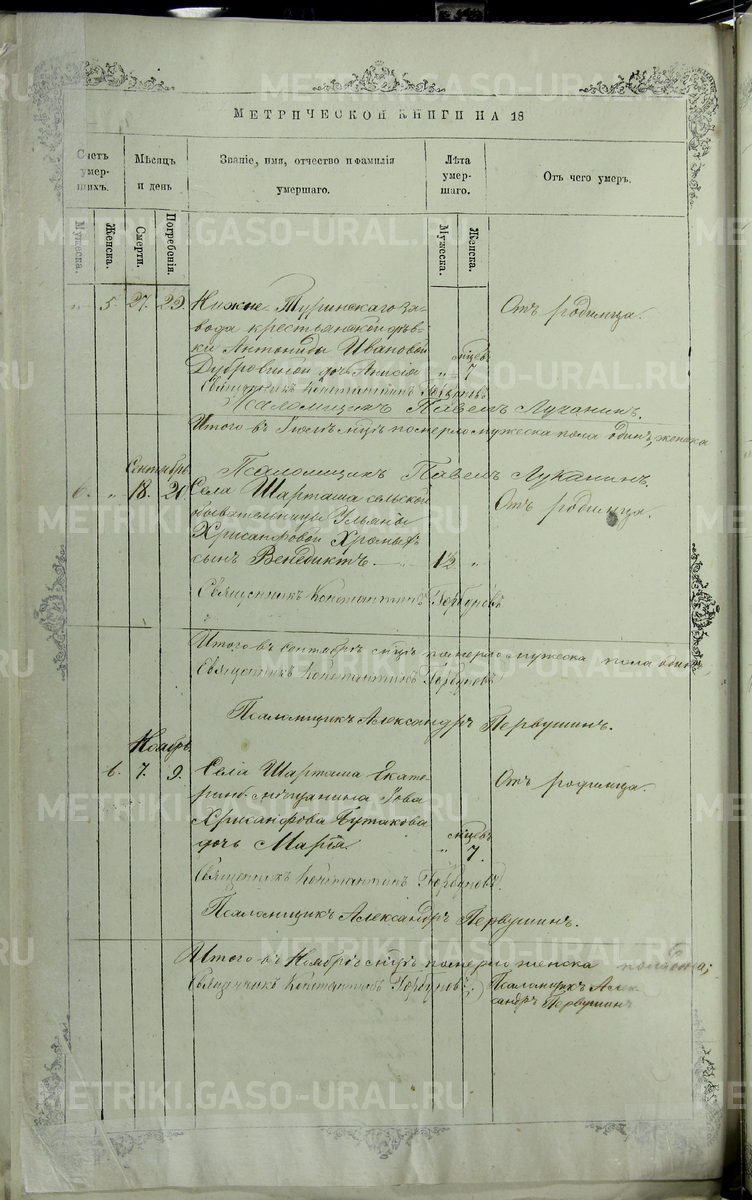 МЕТРИЧЕСКОЙ КНИГИ НА 18
Счетъ умерших.
Мѣсяцъ и день
Званіе, имя, отчество и фамилія умершаго.
Лѣта умершаго.
Отъ чего умеръ.
Мужеска.
Женска.
Смерти.
Погребенія.
Мужеска.
Женска.
" 5. 27. 29. Нижне Туринскаго За-
вода крестьянской дѣв-
ки Антониды Ивановой мѣцевъ
Дубровиной дочь Анисія " 7
Отъ родимца.
Священникъ Константинъ Горбуновъ
Псаломщикъ Павелъ Луканин.
Итого въ Іюлѣ мцѣ померло мужеска пола одинъ, женска
Псаломщикъ Павелъ Луканинъ.
Сентябрь
6. " 18. 20. Села Шарташа сельской
обывательницы Ульяны
Хрисанфовой
сынъ Венедиктъ 1½ "
Отъ родимца.
Священникъ Константинъ Горбуновъ
Итого въ сентябрѣ мцѣ померло мужеска пола одинъ
Священникъ Константинъ Горбуновъ
Псаломщикъ Александръ Первушинъ.
Ноябрь
6. 7. 9. Села Шарташа Екате-
ринб. мѣщанина Іова
Хрисанфова Бутакова мѣцевъ
дочь Марія. " 7.
Отъ родимца.
Священникъ Константинъ Горбуновъ
Псаломщикъ Александръ Первушинъ.
Итого въ Ноябрѣ мцѣ померло женска пола одна;
Священникъ Константинъ Горбуновъ; Псаломщикъ Алек-
сандръ Первушинъ
METRIKI.GASO-URAL.RU